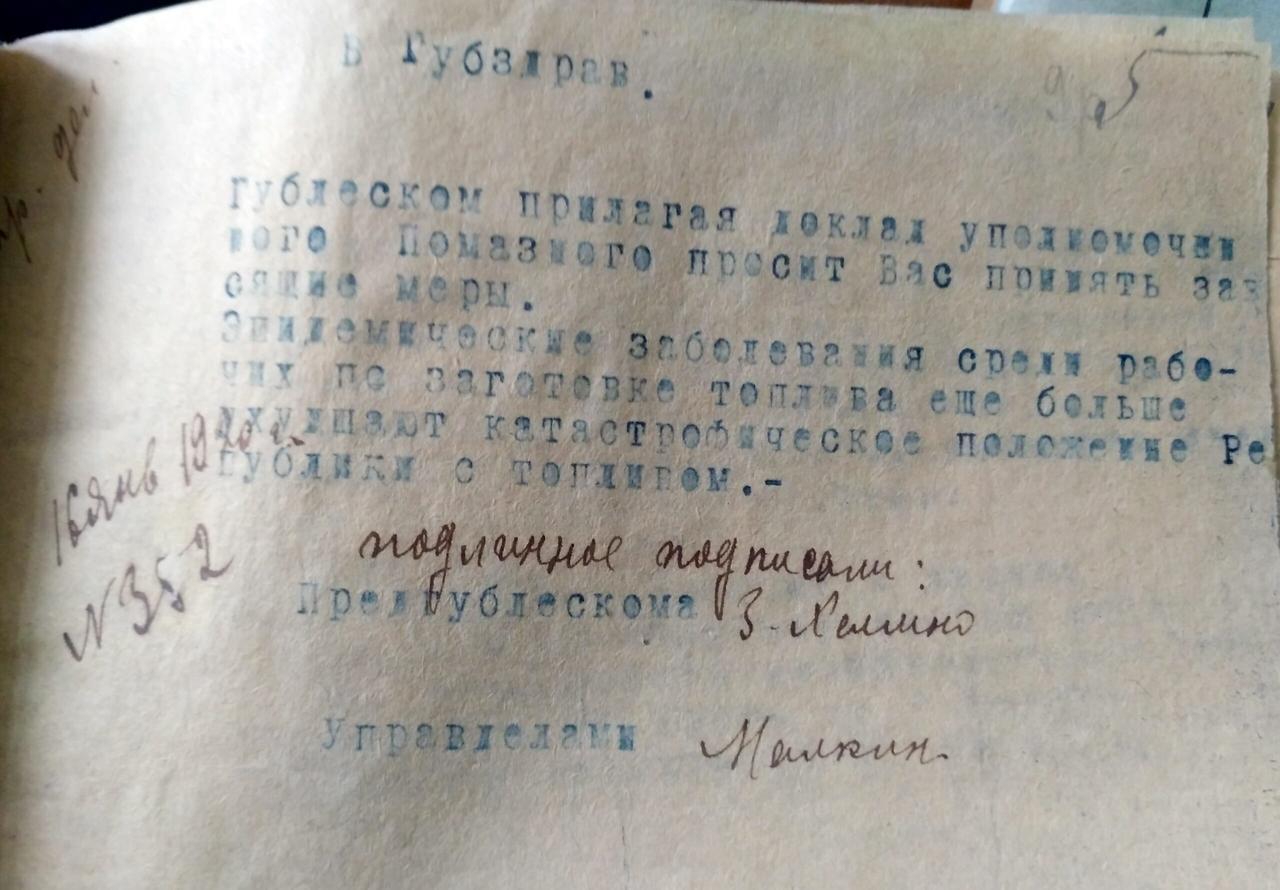 В Губздрав.
Гублеском прилагая доклад уполномочен
ного Помазного просит Вас принять зав
сящие меры.
Эпидемические заболевания среди рабо-
чих по заготовке топлива еще больше
ухудшают катастрофическое положение Ре
публики с топливом.-
16 янв 1920 г.
№352
подлинное подписали:
Предгублескома З.
Управделами Малкин.